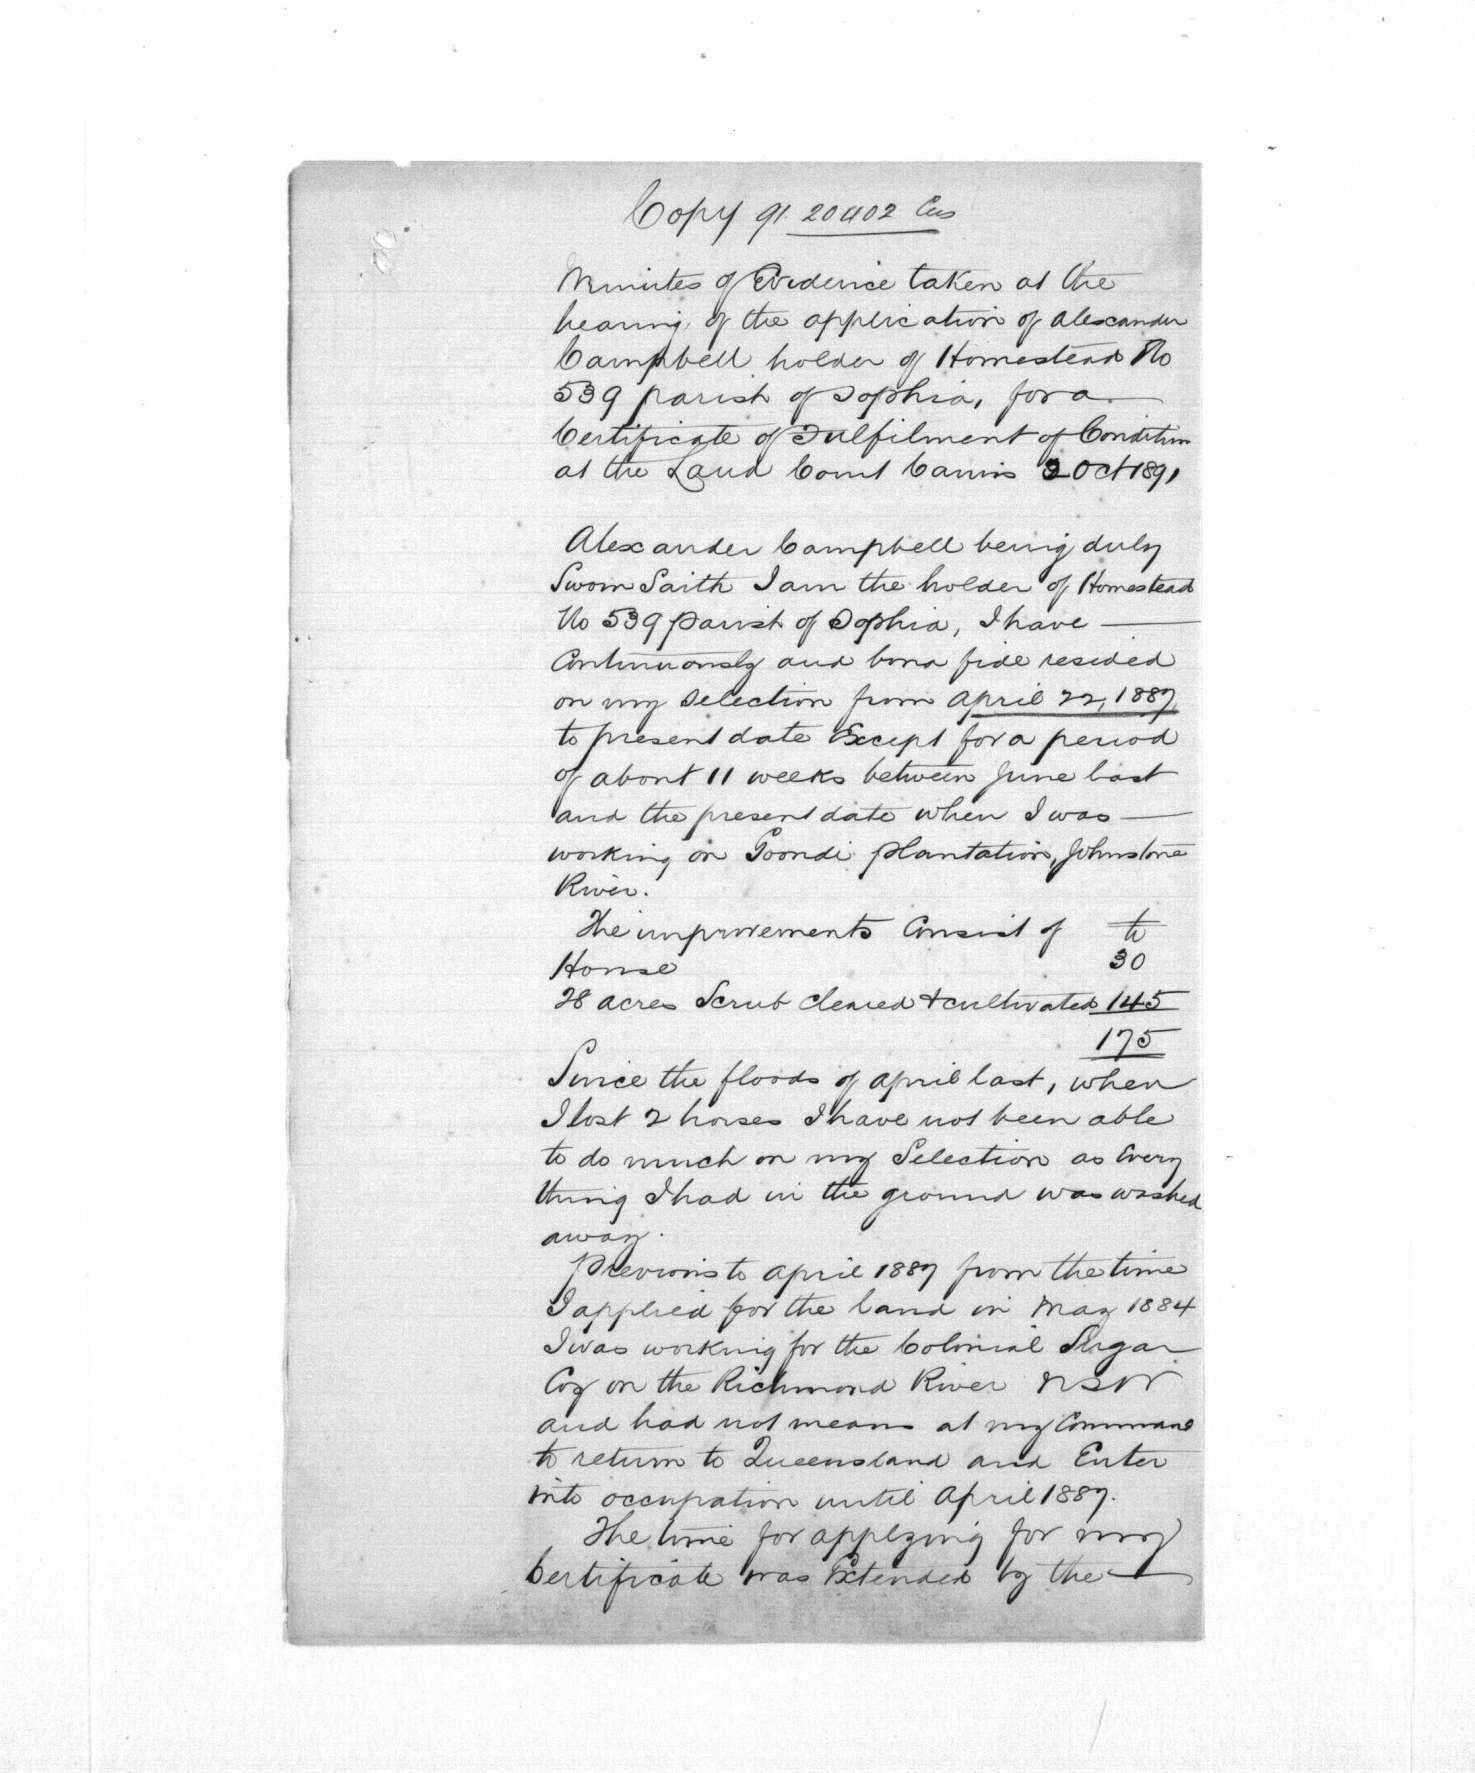 Copy 91. 20402 Cns
Minutes of Evidence taken at the
hearing of the application of Alexander
Campbell holder of Homestead No
539 parish of Sophia, for a —
Certificate of Fulfilment of Condition
at the Land Court Cairns 2 Oct 1891
Alexander Campbell being duly
Sworn Saith I am the holder of Homestead
No 539 parish of Sophia, I have —
Continuously and bona fide resided
on my Selection from April 22, 1887
to present date Except for a period
of about 11 weeks between June last
and the present date when I was —
working on Goondi plantation, Johnstone
River.
The improvements Consist of
House 30
28 acres Scrub cleared & cultivated 145
175
Since the floods of April last, when
I lost 2 horses I have not been able
to do much on my Selection as Every
thing I had in the ground was washed
away.
Previous to April 1887 from the time
I applied for the land in May 1884
I was working for the Colonial Sugar
Coy on the Richmond River NSW
and had not means at my Command
to return to Queensland and Enter
into occupation until April 1887.
The time for applying for my
Certificate was Extended by the —